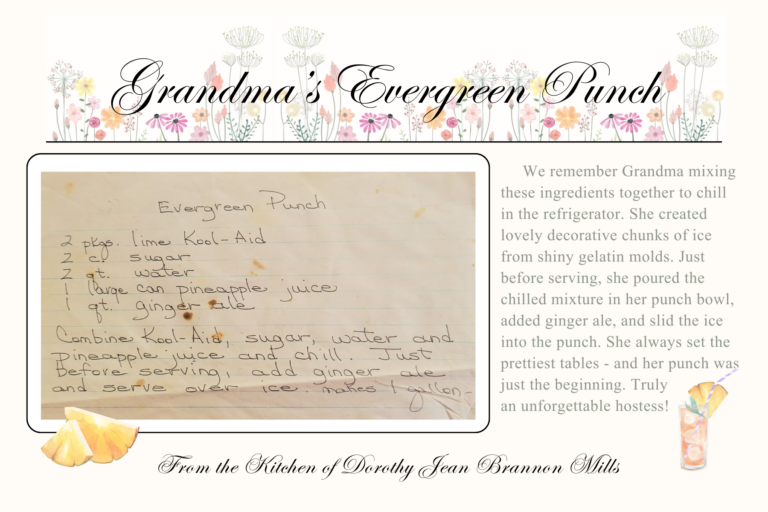 Grandma's Evergreen Punch
Evergreen Punch
2 pkgs. lime Kool-Aid
2 c. sugar
2 qt. water
1 large can pineapple juice
1 qt. ginger ale
Combine Kool-Aid, sugar, water and
pineapple juice and chill. Just
before serving, add ginger ale
and serve over ice. makes 1 gallon-
We remember Grandma mixing
these ingredients together to chill
in the refrigerator. She created
lovely decorative chunks of ice
from shiny gelatin molds. Just
before serving, she poured the
chilled mixture in her punch bowl,
added ginger ale, and slid the ice
into the punch. She always set the
prettiest tables - and her punch was
just the beginning. Truly
an unforgettable hostess!
From the Kitchen of Dorothy Jean Brannon Mills